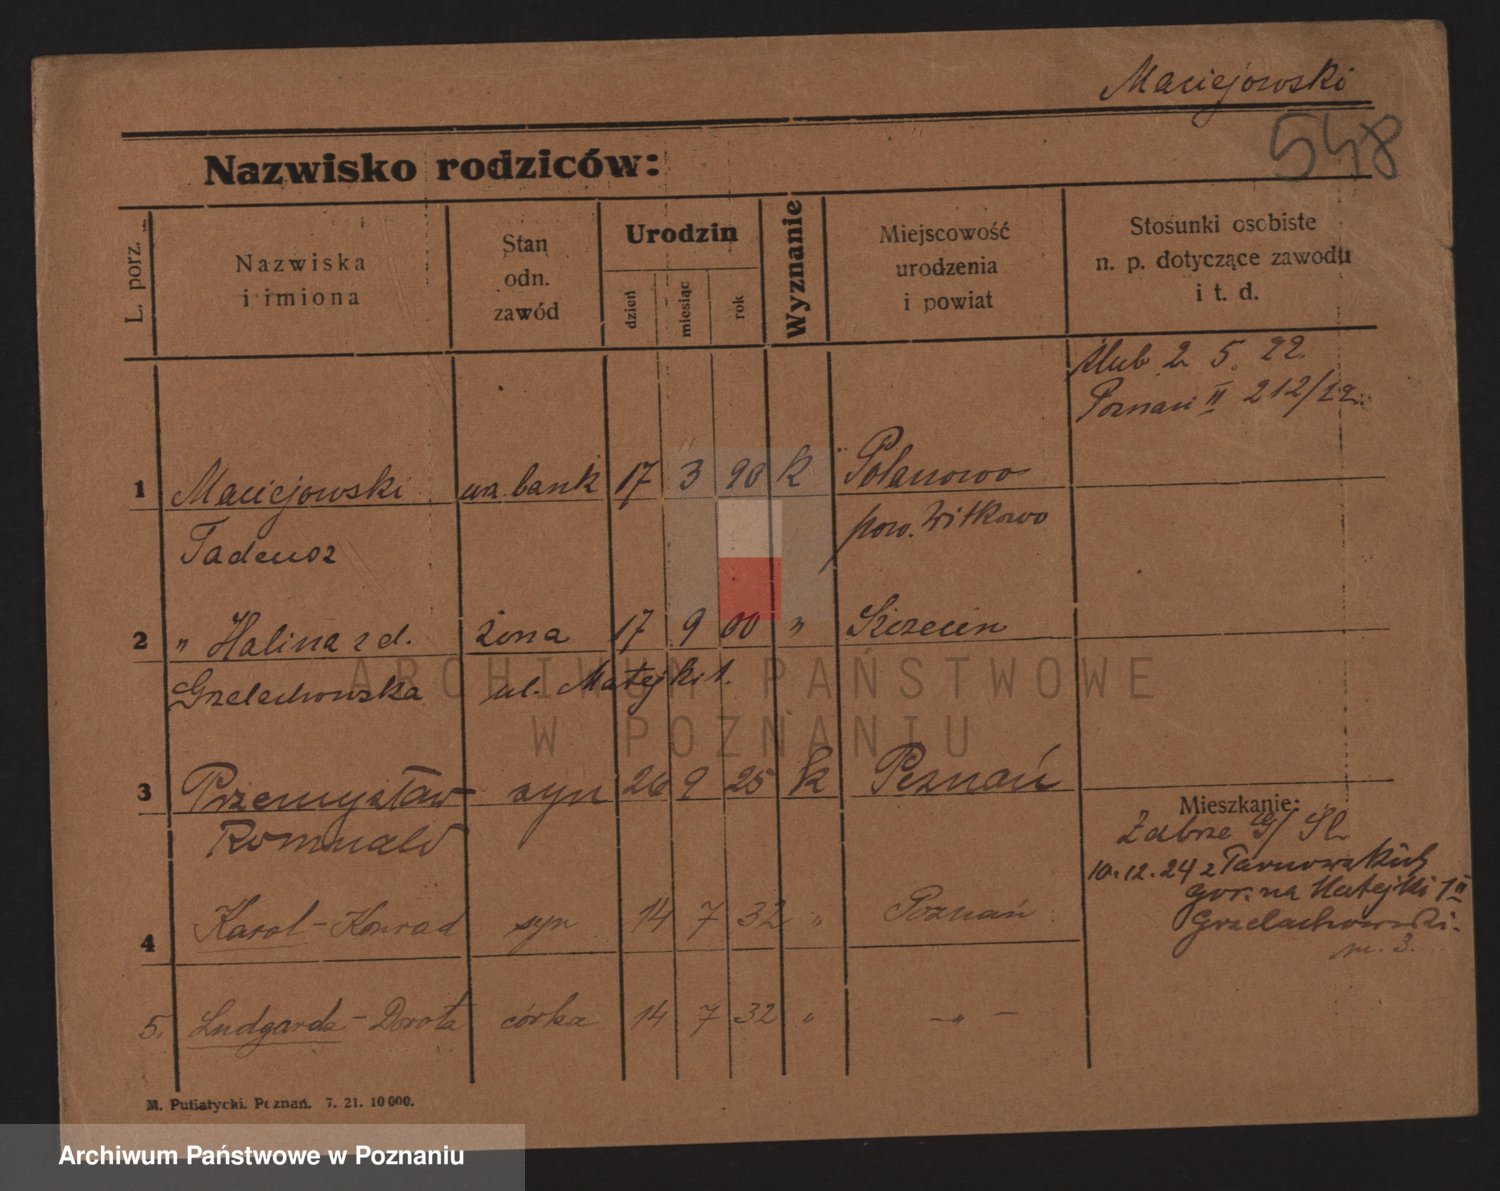 Maciejowski
548
Nazwisko rodziców:
L. porz.
Nazwiska
i imiona
Stan
odn.
zawód
Urodzin
dzień
miesiąc
rok
Wyznanie
Miejscowość
urodzenia
i powiat
Stosunki osobiste
n. p. dotyczące zawodu
i t. d.
ślub 2. 5. 22.
Poznań II 212/22.
1 Maciejowski bank 17 3 90 k Polanowo
Tadeusz pow. Witkowo
2 " Halina z d. żona 17 9 00 " Szczecin
Grzelachowska ul. Matejki 1.
3 Przemysław syn 26 9 25 k Poznań
Romuald
Mieszkanie:
Zabrze G/Śl.
10.12.24 z Tarnowskich
Gór. na Matejki 1 II
Grzelachowski.
m. 3.
4 Karol-Konrad syn 14 7 32 " Poznań
5. Ludgarda-Dorota córka 14 7 32 " -"-
M. Putiatycki. Poznań. 7. 21. 10 000.
ARCHIWUM PAŃSTWOWE
W POZNANIU
Archiwum Państwowe w Poznaniu